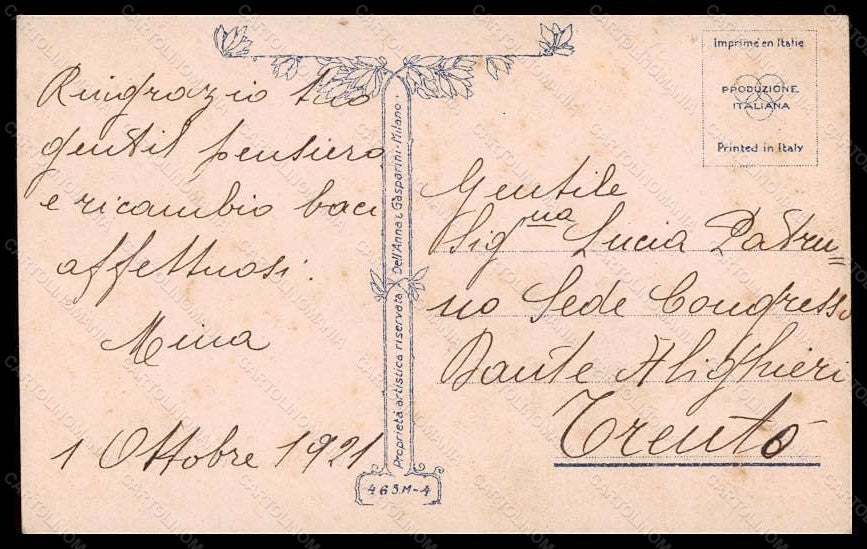 Ringrazio tuo
gentil pensiero
e ricambio baci
affettuosi.
Mina
1 Ottobre 1921
Proprietà artistica riservata Dell'Anna & Gasparini - Milano
463M-4
Imprimé en Italie
PRODUZIONE
ITALIANA
Printed in Italy
Gentile
Sigⁿᵃ Lucia Patru=
no Sede Congresso
Dante Alighieri
Trento
CARTOLINOMANIA